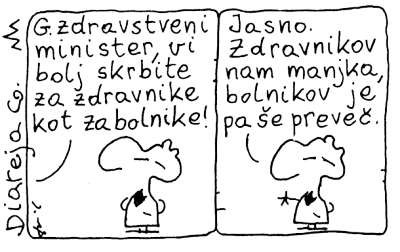 Diareja Co.
G. zdravstveni
minister, vi
bolj skrbite
za zdravnike
kot za bolnike!
Jasno.
Zdravnikov
nam manjka,
bolnikov je
pa še preveč.